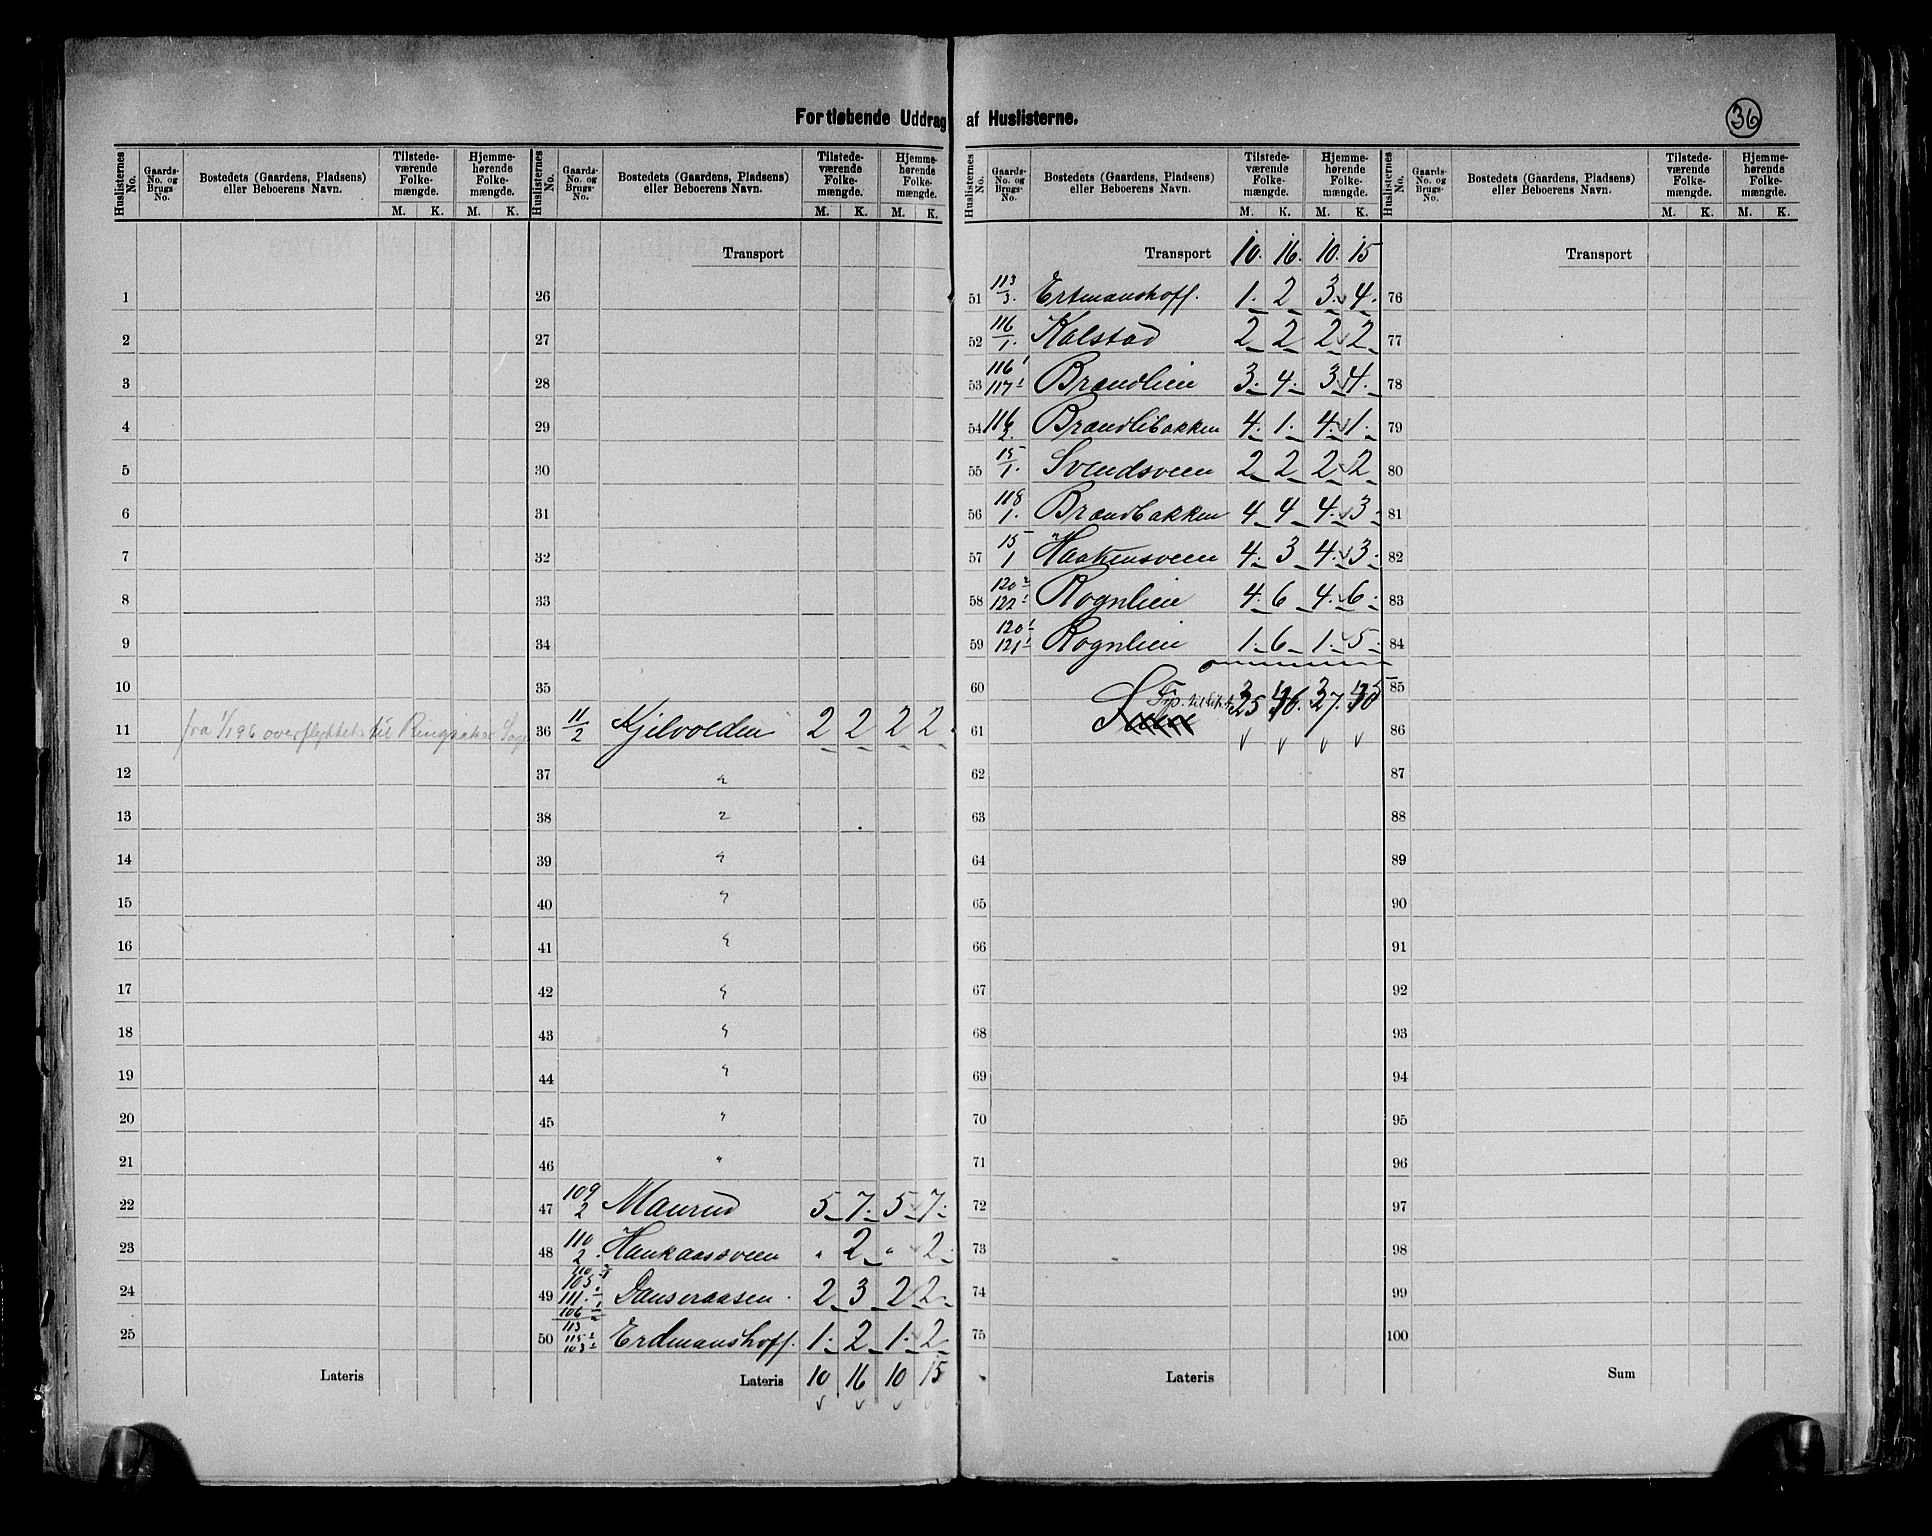 Fortløbende Uddrag af Huslisterne.
36
Huslisternes No.
Gaards-No. og Brugs-No.
Bostedets (Gaardens, Pladsens) eller Beboerens Navn.
Tilstedeværende Folkemængde.
Hjemmehørende Folkemængde.
M. K. M. K.
1
2
3
4
5
6
7
8
9
10
11 fra 1/1 96 overflyttet til Ringsaker
12
13
14
15
16
17
18
19
20
21
22
23
24
25
Lateris
Huslisternes No.
Gaards-No. og Brugs-No.
Bostedets (Gaardens, Pladsens) eller Beboerens Navn.
Tilstedeværende Folkemængde.
Hjemmehørende Folkemængde.
M. K. M. K.
Transport
26
27
28
29
30
31
32
33
34
35
36 11/2 Kjelvolden 2 2 2 2
37 "
38 "
39 "
40 "
41 "
42 "
43 "
44 "
45 "
46 "
47 109/2 Maurud 5 7. 5 7.
48 110/2 Haukaassveen " 2 " 2
49 111 Danseraasen. 2 3 2 2
50 113 Erdmanshoff. 1. 2 1. 2
Lateris 10 16 10 15
Huslisternes No.
Gaards-No. og Brugs-No.
Bostedets (Gaardens, Pladsens) eller Beboerens Navn.
Tilstedeværende Folkemængde.
Hjemmehørende Folkemængde.
M. K. M. K.
Transport 10. 16. 10. 15
51 113/3. Ertmanshoff. 1. 2 3. 4.
52 116/1. Kalstad 2 2 2 2
53 116 1 117 1 Brændlien 3. 4. 3 4.
54 116/2. Brændlibakken 4. 1. 4. 1.
55 15/1. Svendsveen 2 2 2 2
56 118/1. Brændbakken 4 4 4. 3
57 15/1 Haakensveen 4. 3 4. 3.
58 120 2 122 1 Rognlien 4. 6 4. 6.
59 120 1 121 1 Rognlien 1. 6 1. 5.
60
61
62
63
64
65
66
67
68
69
70
71
72
73
74
75
Lateris
Huslisternes No.
Gaards-No. og Brugs-No.
Bostedets (Gaardens, Pladsens) eller Beboerens Navn.
Tilstedeværende Folkemængde.
Hjemmehørende Folkemængde.
M. K. M. K.
Transport
76
77
78
79
80
81
82
83
84
85
86
87
88
89
90
91
92
93
94
95
96
97
98
99
100
Sum